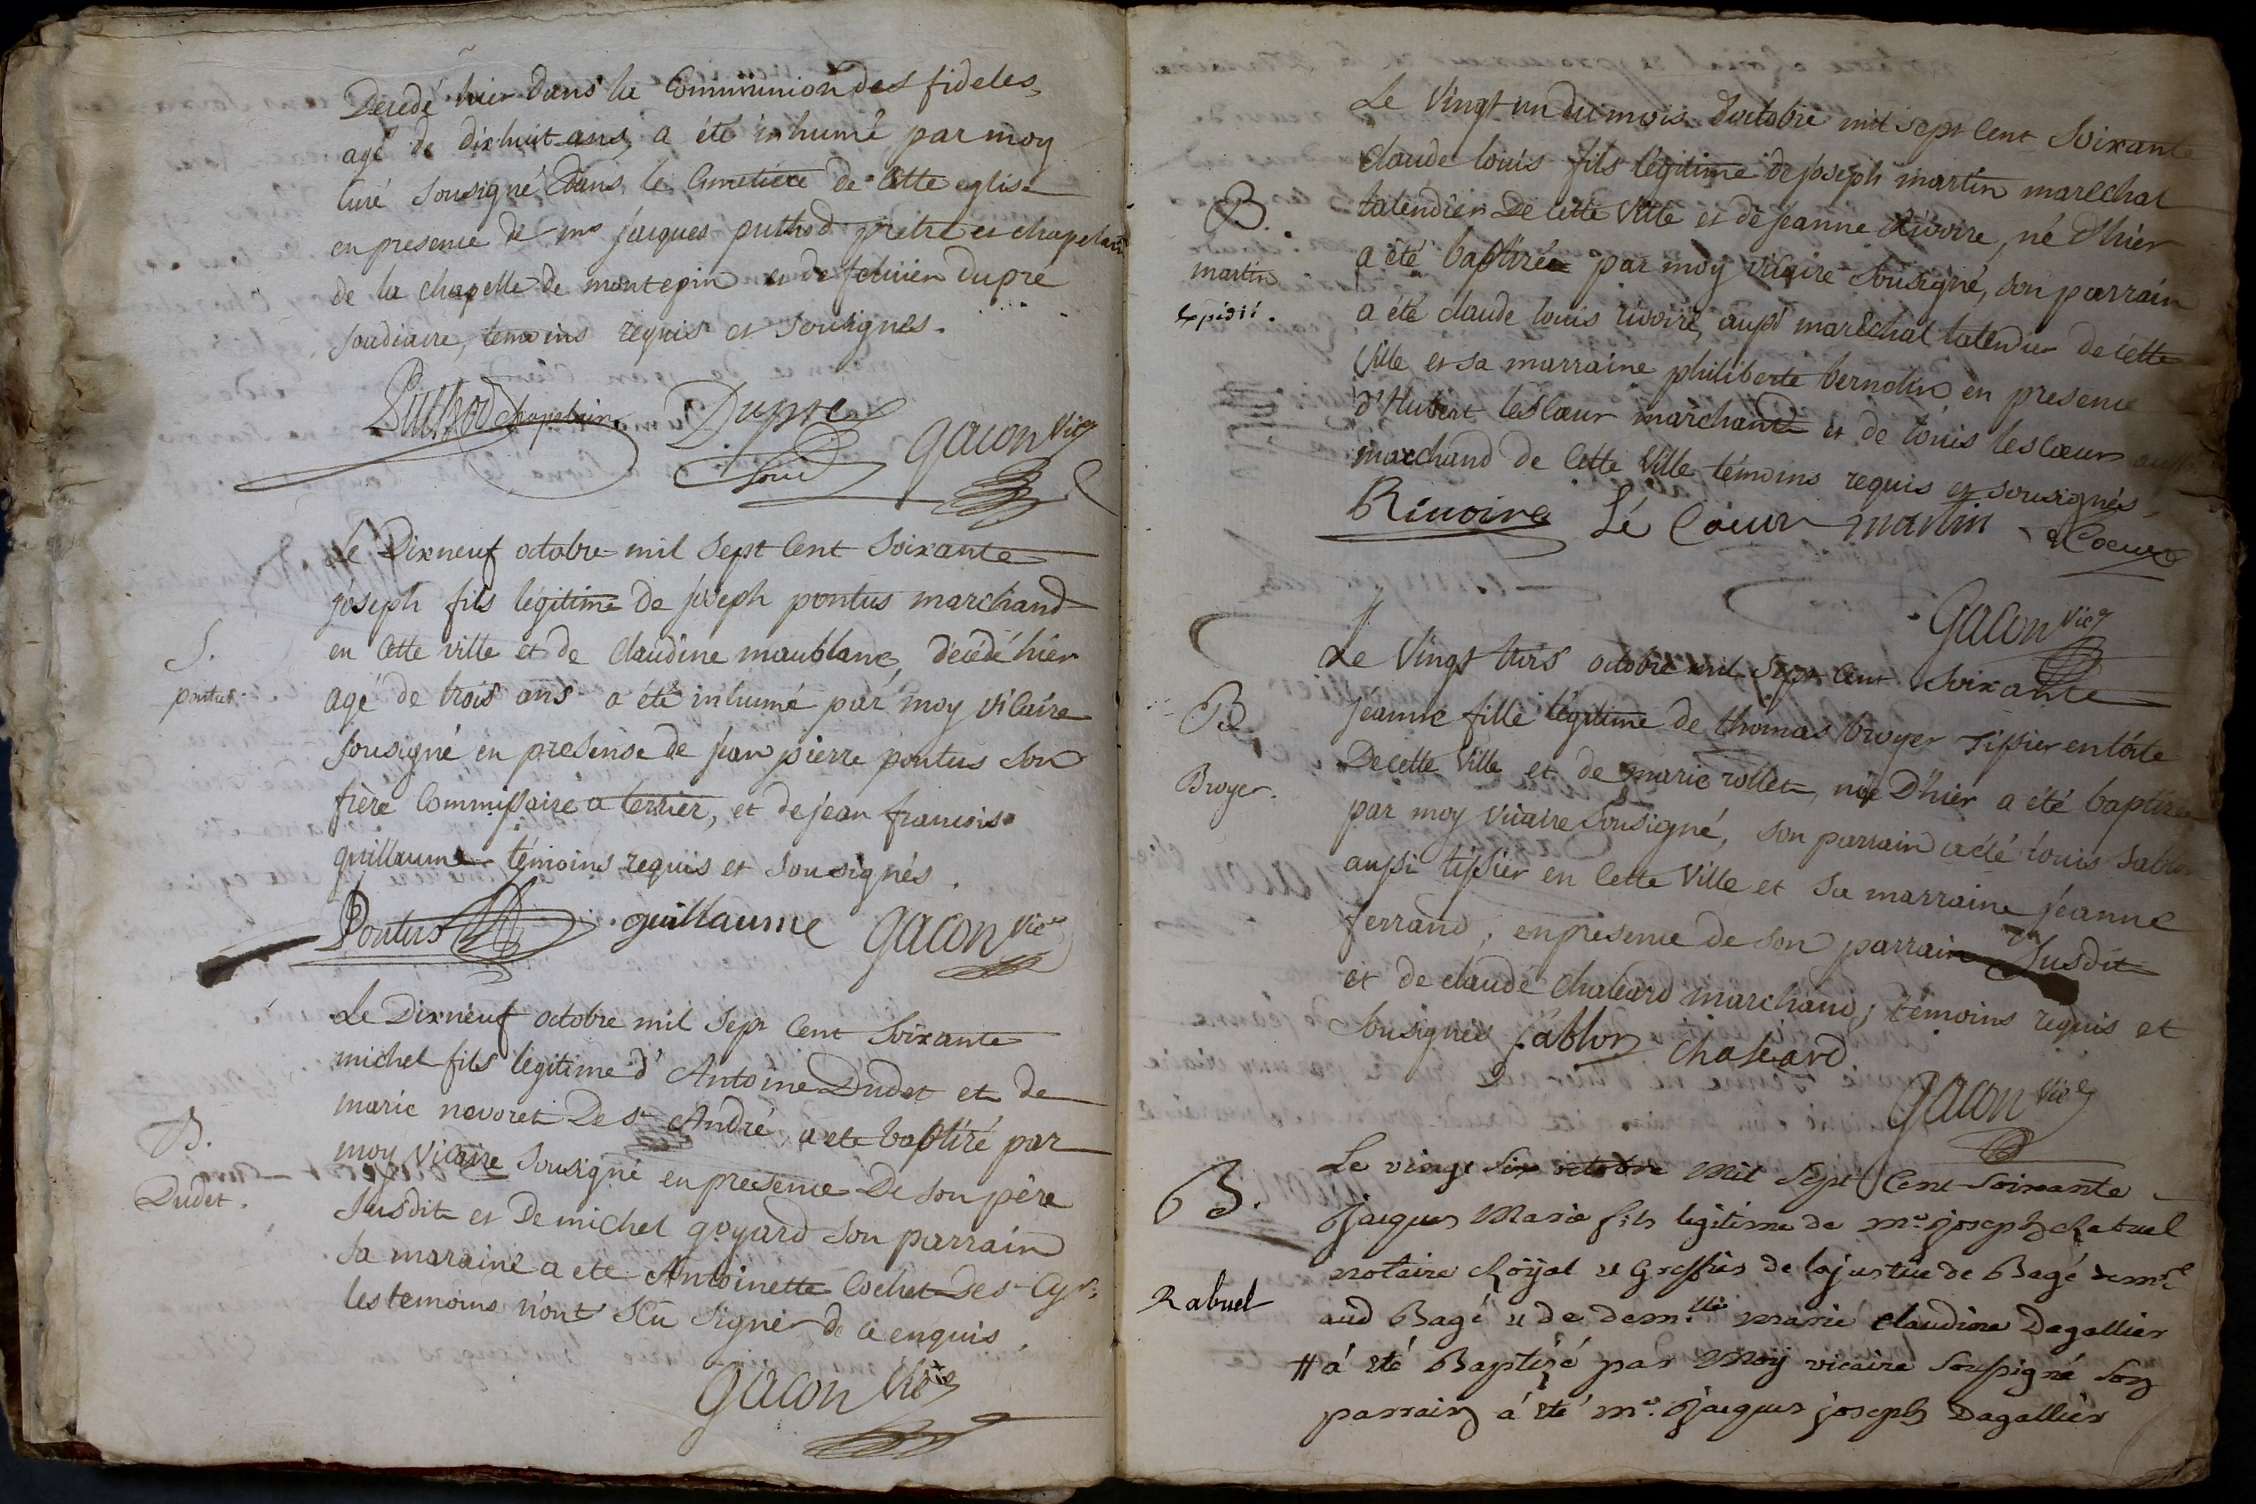 Decedé hier Dans la Communion des fideles,
agé de dixhuit ans, a été inhumé par moy
Curé sousigné Dans le Cimetiére de Cette eglise
en presence de mre jacques puthod pretre et chapelain
de la chapelle de montepin et de felicien dupre
soudiacre, temoins requis et sousignés.
Puthod chapelain Dupre soud Gacon Vicre
Le Dixneuf octobre mil sept Cent Soixante
joseph fils légitime de joseph pontus marchand
en Cette ville et de Claudine maublanc, décédé hier
S.
pontus.
agé de trois ans a été inhumé par moy Vicaire
sousigné en presense de jean pierre pontus son
frère Commissaire a terrier, et de jean francois
guillaume témoins requis et sousignés.
Pontus guillaume Gacon Vicre
Le Dixneuf octobre mil sept Cent Soixante
michel fils légitime d'Antoine Dudet et de
marie nevoret De st André a eté baptizé par
B.
Dudet.
moy Vicaire sousigné en presence De son père
susdit et De michel goyard son parrain
sa maraine a eté Antoinette Cochet De st Cyr.
les temoins n'ont sçu signer de ce enquis.
Gacon Vicre
Le Vingt un du mois d'octobre mil sept Cent Soixante
Claude louis fils légitime de joseph martin marechal
B.
martin
talendier De Cette Ville et de jeanne Rivoire, né D'hier
a été baptizé par moy vicaire sousigné, son parrain
Expédié.
a été claude louis rivoire, aussi maréchal talendier de cette
Ville et sa marraine philiberte bernolin en presence
d'Hubert lescœur marchand et de louis lescœur aussi
marchand de Cette Ville témoins requis et sousignés.
Rivoire Lé Coeur martin Coeur
Gacon Vicre
Le Vingt trois octobre mil sept Cent Soixante
B
Broyer.
jeanne fille légitime de thomas broyer tissier en toile
De cette Ville et de marie rollet, née D'hier a été baptizée
par moy Vicaire sousigné, son parrain a été louis sablon
aussi tissier en Cette Ville et sa marraine jeanne
ferrand, en presence de son parrain susdit
et de claude chaleard marchand, témoins requis et
sousignés sablon chaleard
Gacon Vicre
B.
Rabuel
Le vingt six octobre Mil Sept Cent Soixante
Jacques Marie fils legitime de me joseph Rabuel
notaire Royal et Greffier de la justice de Bagé demt
aud Bagé et de demlle marie claudine Dagallier
# á été Baptizé par Moy vicaire soussigné son
parrain á été me Jacques joseph Dagallier